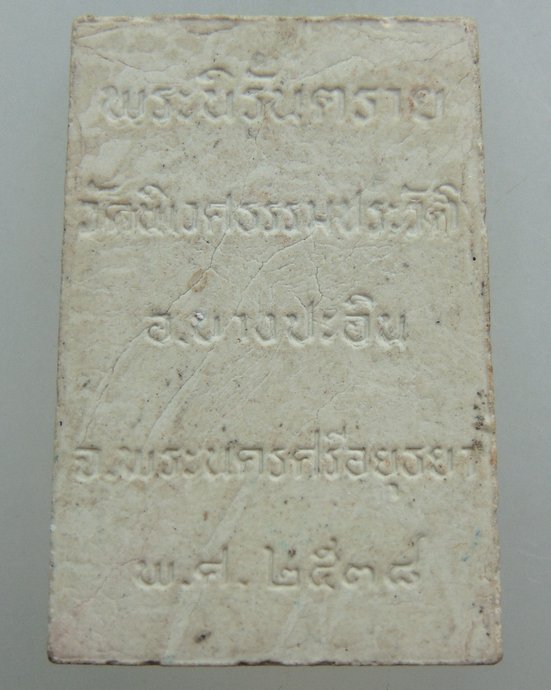 พระนิรันตราย
วัดนิเวศธรรมประวัติ
อ.บางปะอิน
จ.พระนครศรีอยุธยา
พ.ศ. ๒๕๓๘